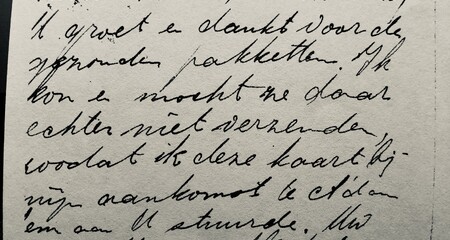 U groet en dankt voor de
gezonden pakketten. Ik
kon en mocht ze daar
echter niet verzenden,
zoodat ik deze kaart bij
mijn aankomst te A'dam
'em aan U stuurde. Uw